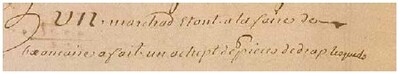 Un marchād estant a la foire de
a fait un achept de pieces de drap lesquels